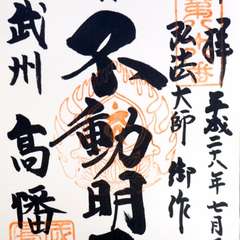 拝
平成二十八年七月
弘法大師 御作
不動明
武州 高幡